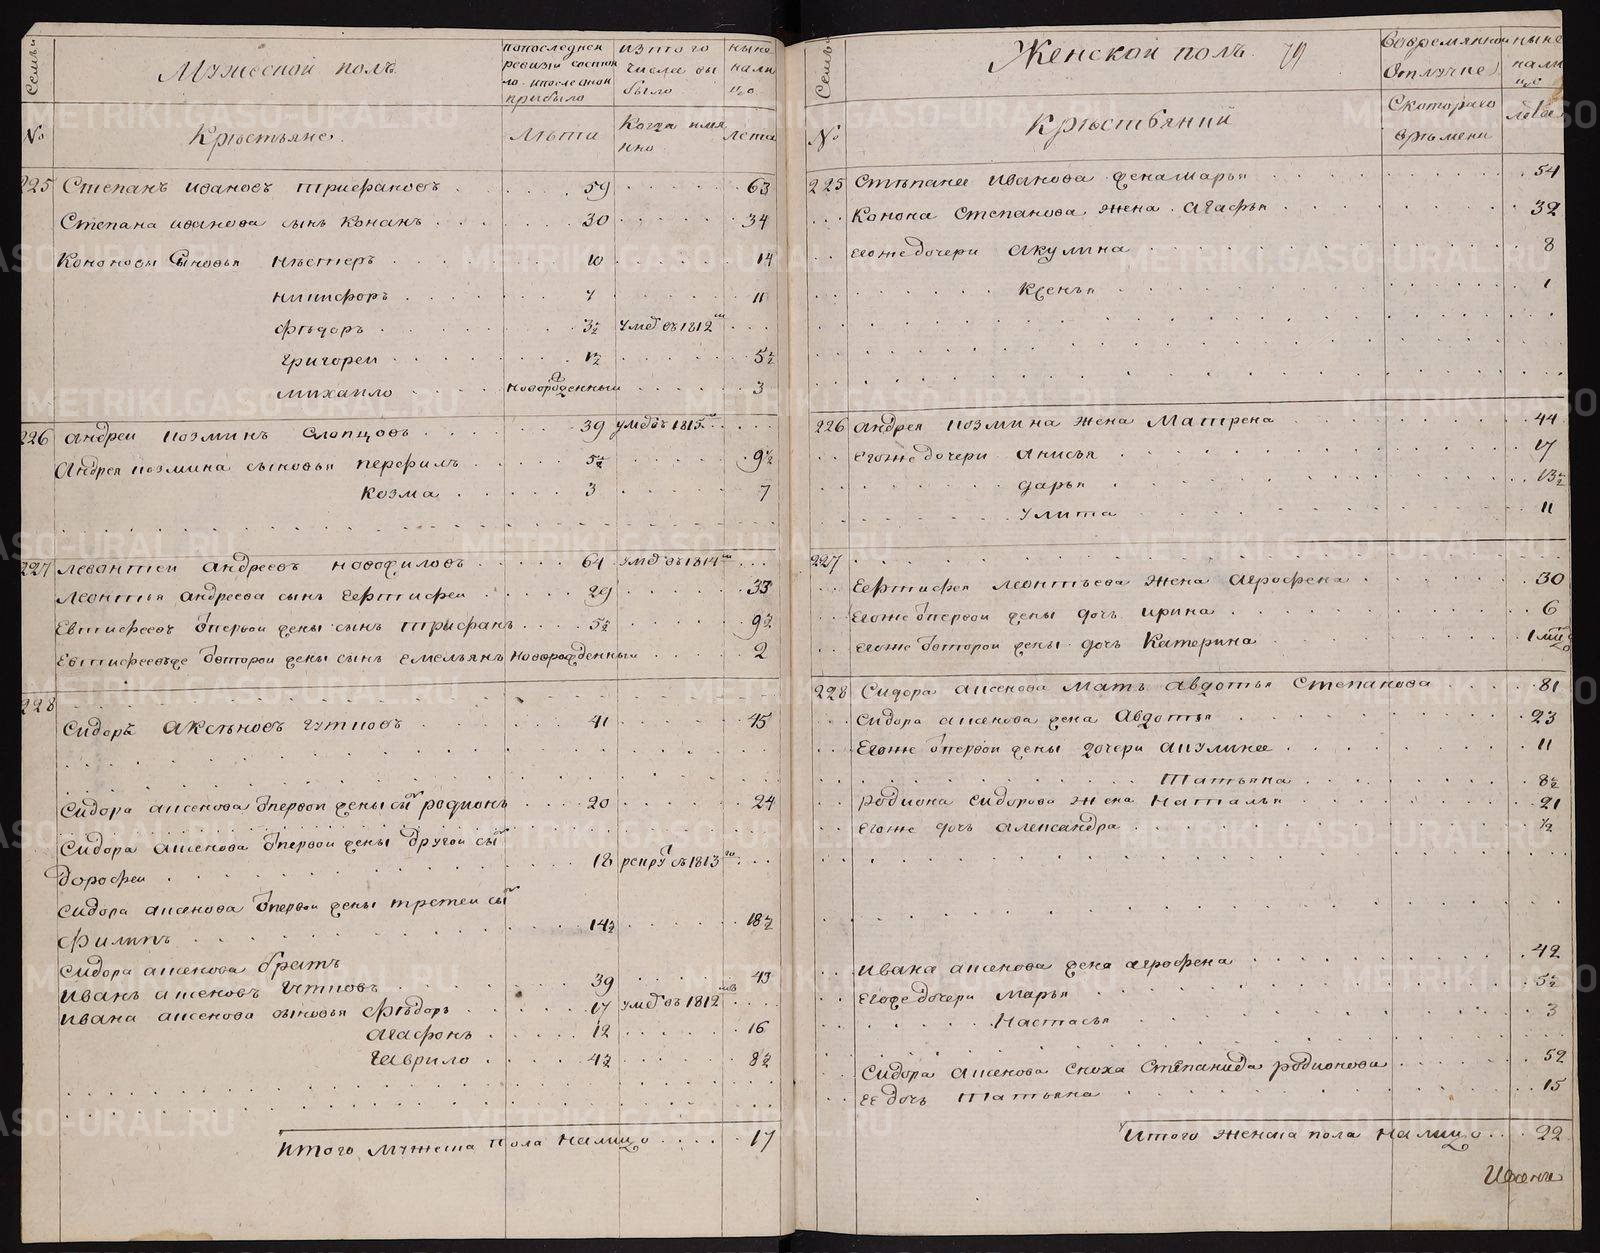 Семьи
Мужеской полъ
по последней ревизи состояло и после оной прибыло
из того числа выбыло
ныне на лицо
№
Крестьяне.
Лѣта
Когда имянно
Лета
225 Степанъ Ивановъ Трифановъ 59 63
Степана Иванова сынъ Конанъ 30 34
Кононовы Сыновья Нестеръ 10 14
Никифоръ 7 11
Фѣдоръ 3½ умеръ въ 1812
Григореи 1½ 5½
Михаило новорожденныи 3
226 Андреи Козминъ Слопцовъ 39 умеръ въ 1815
Андрея Козмина сыновья Перфилъ 5½ 9½
Козма 3 7
227 Левонтеи Андреевъ Новофиловъ 64 умеръ въ 1814
Леонтья Андреева сынъ Евтифеи 29 33
Евтифеевъ впервои жены сынъ Трифанъ 5½ 9½
Евтифеевъже второи жены сынъ Емельянъ новорожденныи 2
228
Сидоръ Аксѣновъ Чутковъ 41 45
Сидора Аксенова впервои жены сынъ Родионъ 20 24
Сидора Аксенова впервои жены другои сынъ
Дорофеи 18 рекрутъ въ 1813 го
Сидора Аксенова впервои жены третеи сынъ
Филипъ 14½ 18½
Сидора Аксенова братъ
Иванъ Аксеновъ Чутковъ 39 43
Ивана Аксенова сыновья Фѣдоръ 17 умеръ въ 1812
Агафонъ 12 16
Гаврило 4½ 8½
Итого Мужеска пола на лицо 17
Семьи
Женской полъ 79
Во временной отлучке
ныне на лицо
№
Крѣстьянии
С котораго врѣмени
лета
225 Стѣпанее Иванова жена Марья 54
Конона Степанова жена Агафья 32
Егоже дочери Акулина 8
Ксенья 1
226 Андрея Козмина жена Матрена 44
Егоже дочери Анисья 17
Дарья 13½
Улита 11
227
Евтифея Леонтьева жена Агрофена 30
Егоже впервои жены дочь Ирина 6
Егоже второи жены дочь Катерина 1
228 Сидора Аксенова Мать Авдотья Степанова 81
Сидора Аксенова жена Авдотья 23
Егоже впервои жены дочери Акулинее 11
Татьяна 8½
Родиона Сидорова жена Наталья 21
Егоже дочь Александра ½
Ивана Аксенова жена Агрофена 42
Егоже дочери Марья 5½
Настасья 3
Сидора Аксенова Сноха Стѣпанида Родионова 52
Ее дочь Татьяна 15
Итого женска пола на лицо 22
METRIKI.GASO-URAL.RU